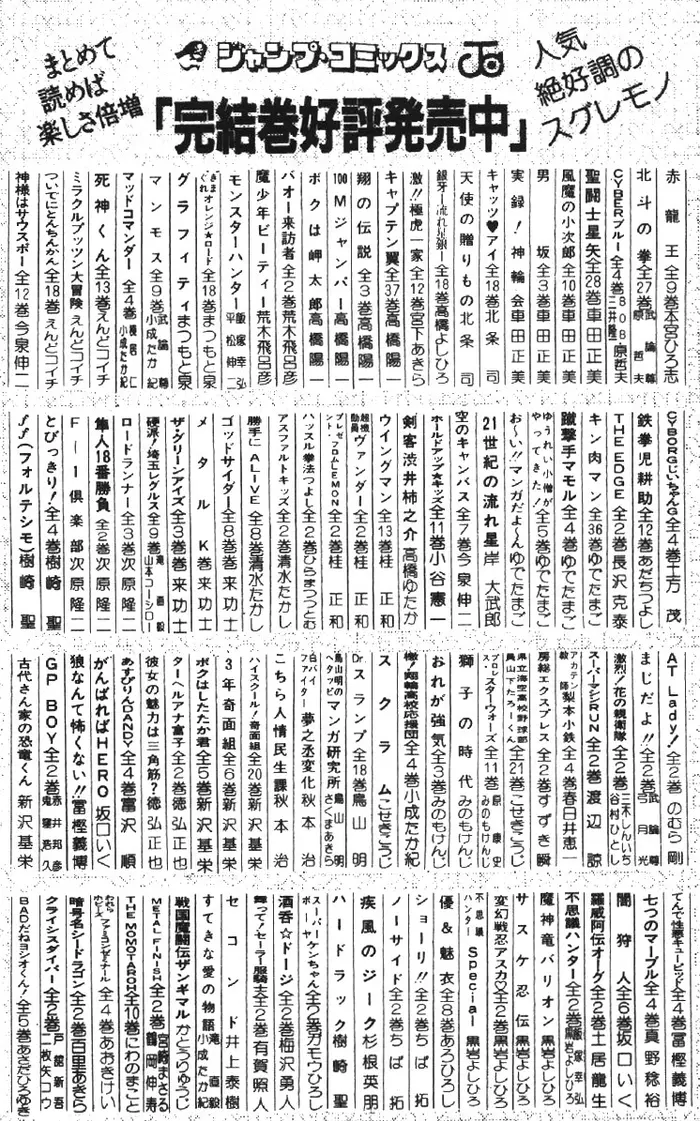 まとめて
読めば
楽しさ倍増
ジャンプ・コミックス
人気
絶好調の
スグレモノ
「完結巻好評発売中」
赤龍王 全9巻 本宮ひろ志
北斗の拳 全27巻 武論尊 原哲夫
CYBERブルー 全4巻 BOB 三井隆一 原哲夫
聖闘士星矢 全28巻 車田正美
風魔の小次郎 全10巻 車田正美
男坂 全3巻 車田正美
実録!神輪会 車田正美
キャッツ♥アイ 全18巻 北条司
天使の贈りもの 北条司
銀牙―流れ星 銀― 全18巻 高橋よしひろ
激!!極虎一家 全12巻 宮下あきら
キャプテン翼 全37巻 高橋陽一
翔の伝説 全3巻 高橋陽一
100Mジャンパー 高橋陽一
ボクは岬太郎 高橋陽一
バオー来訪者 全2巻 荒木飛呂彦
魔少年ビーティー 荒木飛呂彦
モンスターハンター 飯塚幸弘 平松伸二
きまぐれオレンジ★ロード 全18巻 まつもと泉
グラフィティ まつもと泉
マンモス 全9巻 武論尊 小成たか紀
マッドコマンダー 全4巻 小成たか紀
死神くん 全13巻 えんどコイチ
ミラクルプッツン大冒険 えんどコイチ
ついでにとんちんかん 全18巻 えんどコイチ
神様はサウスポー 全12巻 今泉伸二
CYBORGじいちゃんG 全4巻 土方茂
鉄拳児耕助 全12巻 あだちつよし
THE EDGE 全2巻 長沢克泰
キン肉マン 全36巻 ゆでたまご
蹴撃手マモル 全4巻 ゆでたまご
ゆうれい小僧がやってきた! 全5巻 ゆでたまご
お~い!!マンガだよ~ん ゆでたまご
21世紀の流れ星 岸大武郎
空のキャンバス 全7巻 今泉伸二
ホールドアップ★キッズ 全11巻 小谷憲一
剣客渋井柿之介 高橋ゆたか
ウイングマン 全13巻 桂正和
超機動員ヴァンダー 全2巻 桂正和
プレゼント・フロムLEMON 全2巻 桂正和
ハッスル拳法つよし 全2巻 ひらまつつとむ
アスファルトキッズ 全2巻 清水たかし
勝手にALIVE 全8巻 清水たかし
ゴッドサイダー 全8巻 巻来功士
メタルK 巻来功士
ザ・グリーンアイズ 全3巻 巻来功士
硬派!埼玉レグルス 全9巻 滝直毅 山本コーシロー
ロードランナー 全3巻 次原隆二
隼人18番勝負 全2巻 次原隆二
F-1倶楽部 次原隆二
とびっきり! 全4巻 樹崎聖
ff(フォルテシモ) 樹崎聖
AT Lady! 全2巻 のむら剛
まじだよ!! 全2巻 武論尊 弓月光
激烈!花の親衛隊 全2巻 三木しんいち 谷村ひとし
スーパーマシンRUN 全2巻 渡辺諒
アカテン教師 梨本小鉄 全4巻 春日井恵一
房総エクスプレス 全2巻 すずき瞬
県立海空高校野球部員山下たろーくん 全21巻 こせきこうじ
プロレス スターウォーズ 全11巻 原康史 みのもけんじ
獅子の時代 みのもけんじ
おれが強気 全3巻 みのもけんじ
檄!翔輪高校応援団 全4巻 小成たか紀
スクラム こせきこうじ
Dr.スランプ 全18巻 鳥山明
鳥山明のヘタッピマンガ研究所 鳥山明 さくまあきら
白バイファイター 夢之丞変化 秋本治
こちら人情民生課 秋本治
ハイスクール!奇面組 全20巻 新沢基栄
3年奇面組 全6巻 新沢基栄
ボクはしたたか君 全5巻 新沢基栄
ターヘルアナ富子 全2巻 徳弘正也
彼女の魅力は三角筋? 徳弘正也
あすりんDANDY 全4巻 富沢順
がんばればHERO 坂口いく
狼なんて怖くない!! 冨樫義博
GP BOY 全2巻 赤井邦彦 鬼窪浩久
古代さん家の恐竜くん 新沢基栄
てんで性悪キューピッド 全4巻 冨樫義博
七つのマーブル 全4巻 真野稔裕
闇狩人 全6巻 坂口いく
羅威阿伝オーグ 全2巻 土居龍生
不思議ハンター 全2巻 飯塚幸弘 黒岩よしひろ
魔神竜バリオン 黒岩よしひろ
サスケ忍伝 黒岩よしひろ
変幻戦忍アスカ♡ 全2巻 黒岩よしひろ
不思議ハンターSpecial 黒岩よしひろ
優&魅衣 全8巻 あろひろし
ショーリ!! 全2巻 ちば拓
ノーサイド 全2巻 ちば拓
疾風のジーク 杉根英朋
ハードラック 樹崎聖
スーパーボーヤ ケンちゃん 全2巻 ガモウひろし
酒呑☆ドージ 全2巻 梅沢勇人
舞って!セーラー服騎士 全2巻 有賀照人
セコンド 井上泰樹
すてきな愛の物語 滝直毅 小成たか紀
戦国魔闘伝ザンギマル かとうりゅうじ
METAL FINISH 全2巻 宮崎まさる 鶴岡伸寿
THE MOMOTAROH 全10巻 にわのまこと
われらホビーズ ファミコンゼミナール 全4巻 あおきけい
暗号名シードラゴン 全2巻 百里あきら
クライシスダイバー 全2巻 戸舘新吾 二枚矢コウ
BADだねヨシオくん! 全5巻 あさだひろゆき